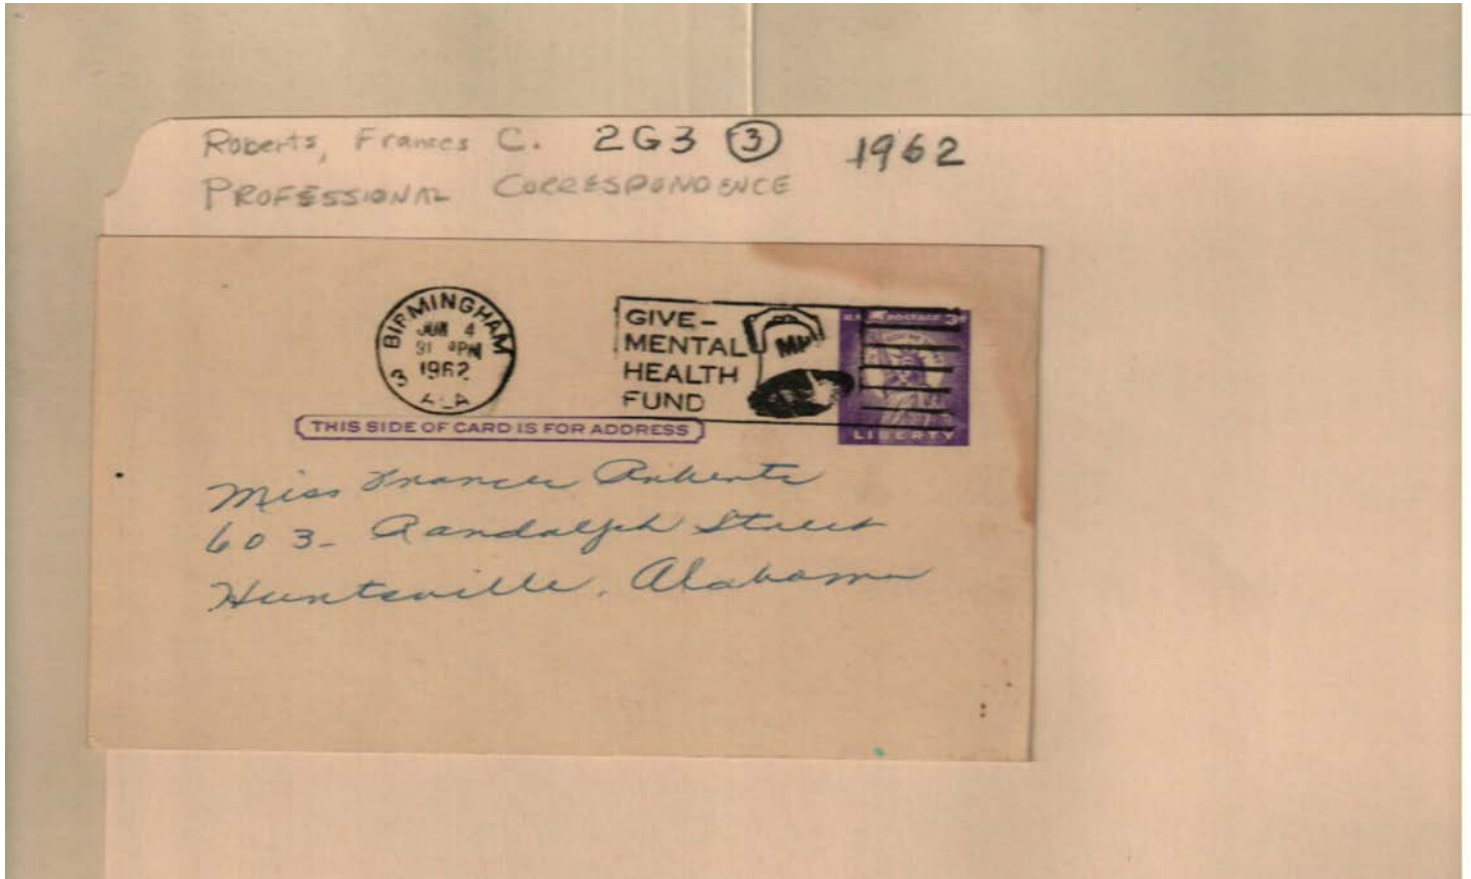 Roberts, Frances C. 2G3 ③ 1962
PROFESSIONAL CORRESPONDENCE
BIRMINGHAM
JUN 4
PM
1962
3 ALA
GIVE-
MENTAL
HEALTH
FUND
MH
U.S. POSTAGE 3¢
LIBERTY
THIS SIDE OF CARD IS FOR ADDRESS
Miss Frances Roberts
603- Randolph Street
Huntsville, Alabama